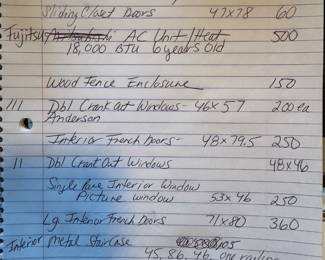 Sliding Closet Doors 47x78 60
Fujitsu AC Unit/Heat 500
18,000 BTU 6 years old
Wood Fence Enclosure 150
111 Dbl Crank Out Windows - 46x57 200 ea
Anderson
Interior French Doors - 48x79.5 250
11 Dbl Crank Out Windows 48x46
Single Pane Interior Window
Picture window 53x46 250
Lg Interior French Doors 71x80 360
Interior Metal Staircase
45, 86, 46, one railing